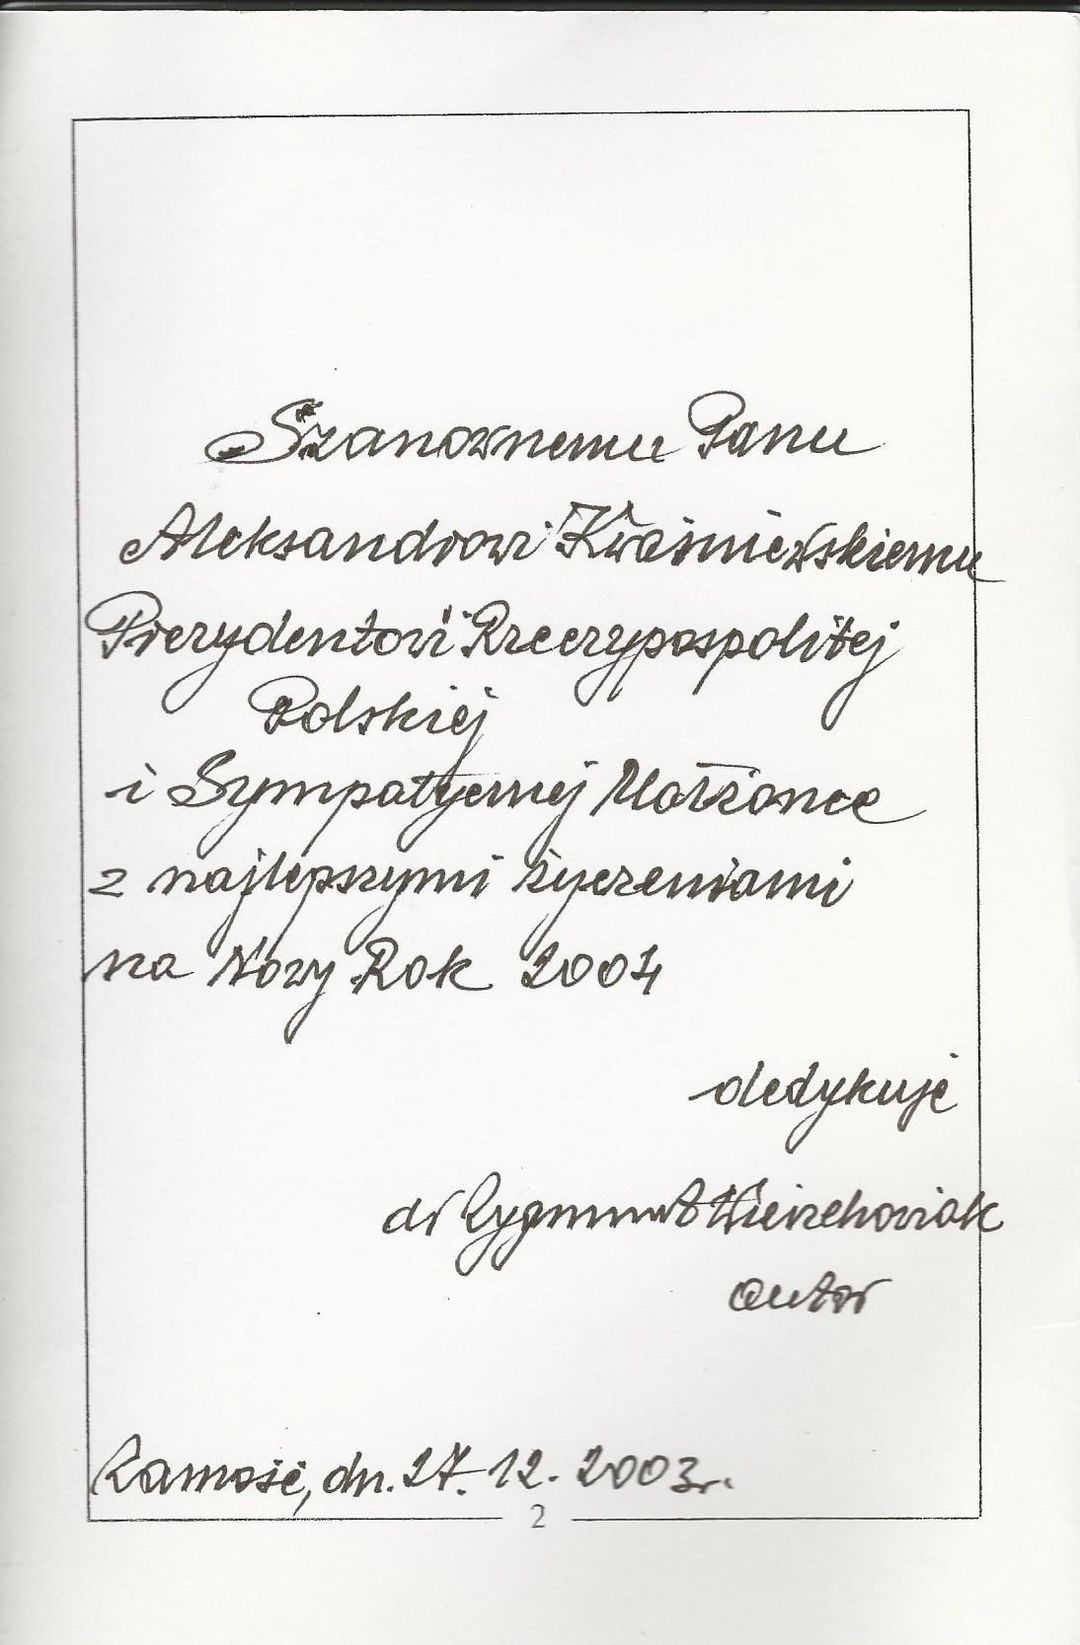 Szanownemu Panu
Aleksandrowi Kwaśniewskiemu
Prezydentowi Rzeczypospolitej
Polskiej
i Sympatycznej Małżonce
z najlepszymi życzeniami
na Nowy Rok 2004
dedykuje
dr Zygmunt Wierzchowiak
autor
Zamość, dn. 27.12.2003r.
2